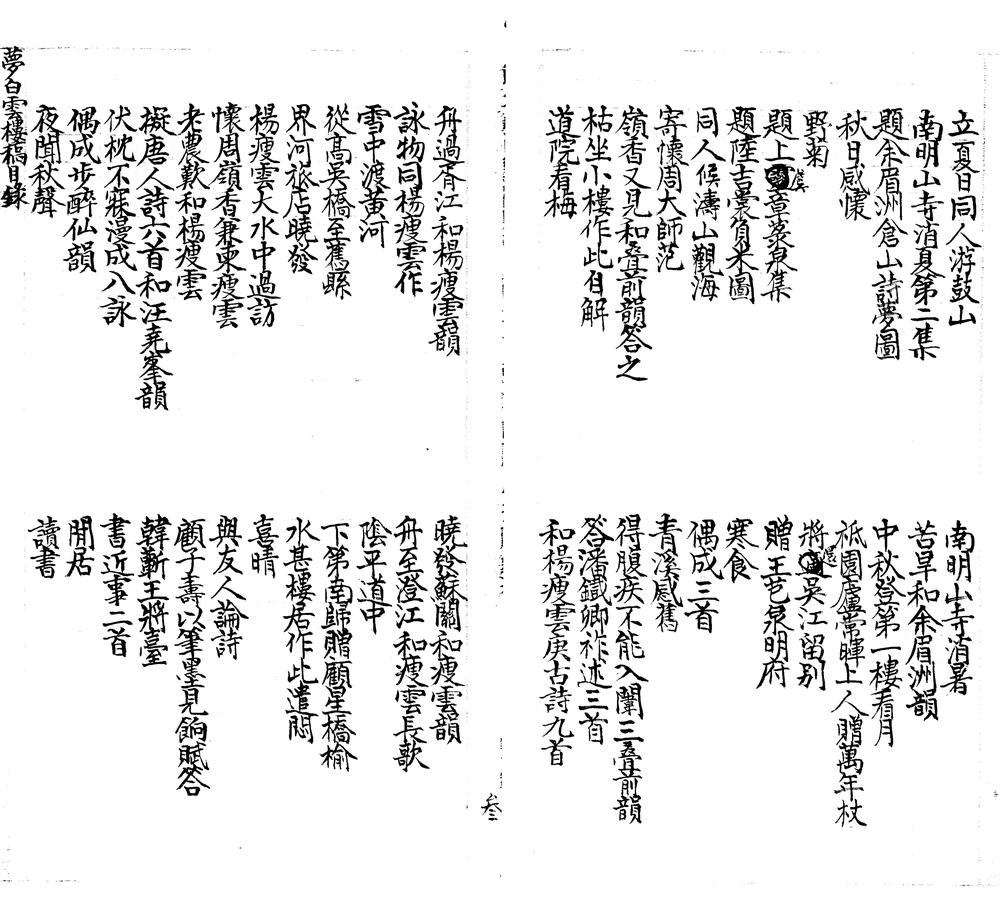 立夏日同人游鼓山
南明山寺消暑
南明山寺消夏第二集
苦旱和余眉洲韻
題余眉洲倉山詩夢圖
中秋登第一樓看月
秋日感懷
祗園廬常暉上人贈萬年杖
野菊
將還吳江留別
題上虞章菉泉集
贈王芑泉明府
題陸吉裳負米圖
寒食
同人候濤山觀海
偶成三首
寄懷周大師范
青溪感舊
嶺香又見和叠前韻答之
得腹疾不能入闈三叠前韻
枯坐小樓作此自解
答潘鐵卿祚述三首
道院看梅
和楊瘦雲庚古詩九首
叁
舟過胥江和楊瘦雲韻
曉發蘇關和瘦雲韻
詠物同楊瘦雲作
舟至澄江和瘦雲長歌
雪中渡黃河
陰平道中
從高吳橋至舊縣
下第南歸贈顧星橋榆
界河旅店曉發
水甚樓居作此遣悶
楊瘦雲大水中過訪
喜晴
懷周嶺香兼柬瘦雲
與友人論詩
老農歎和楊瘦雲
顧子壽以筆墨見餉賦答
擬唐人詩六首和汪堯峯韻
韓蘄王將臺
伏枕不寐漫成八詠
書近事二首
偶成步醉仙韻
閒居
夜聞秋聲
讀書
夢白雲樓稿目錄